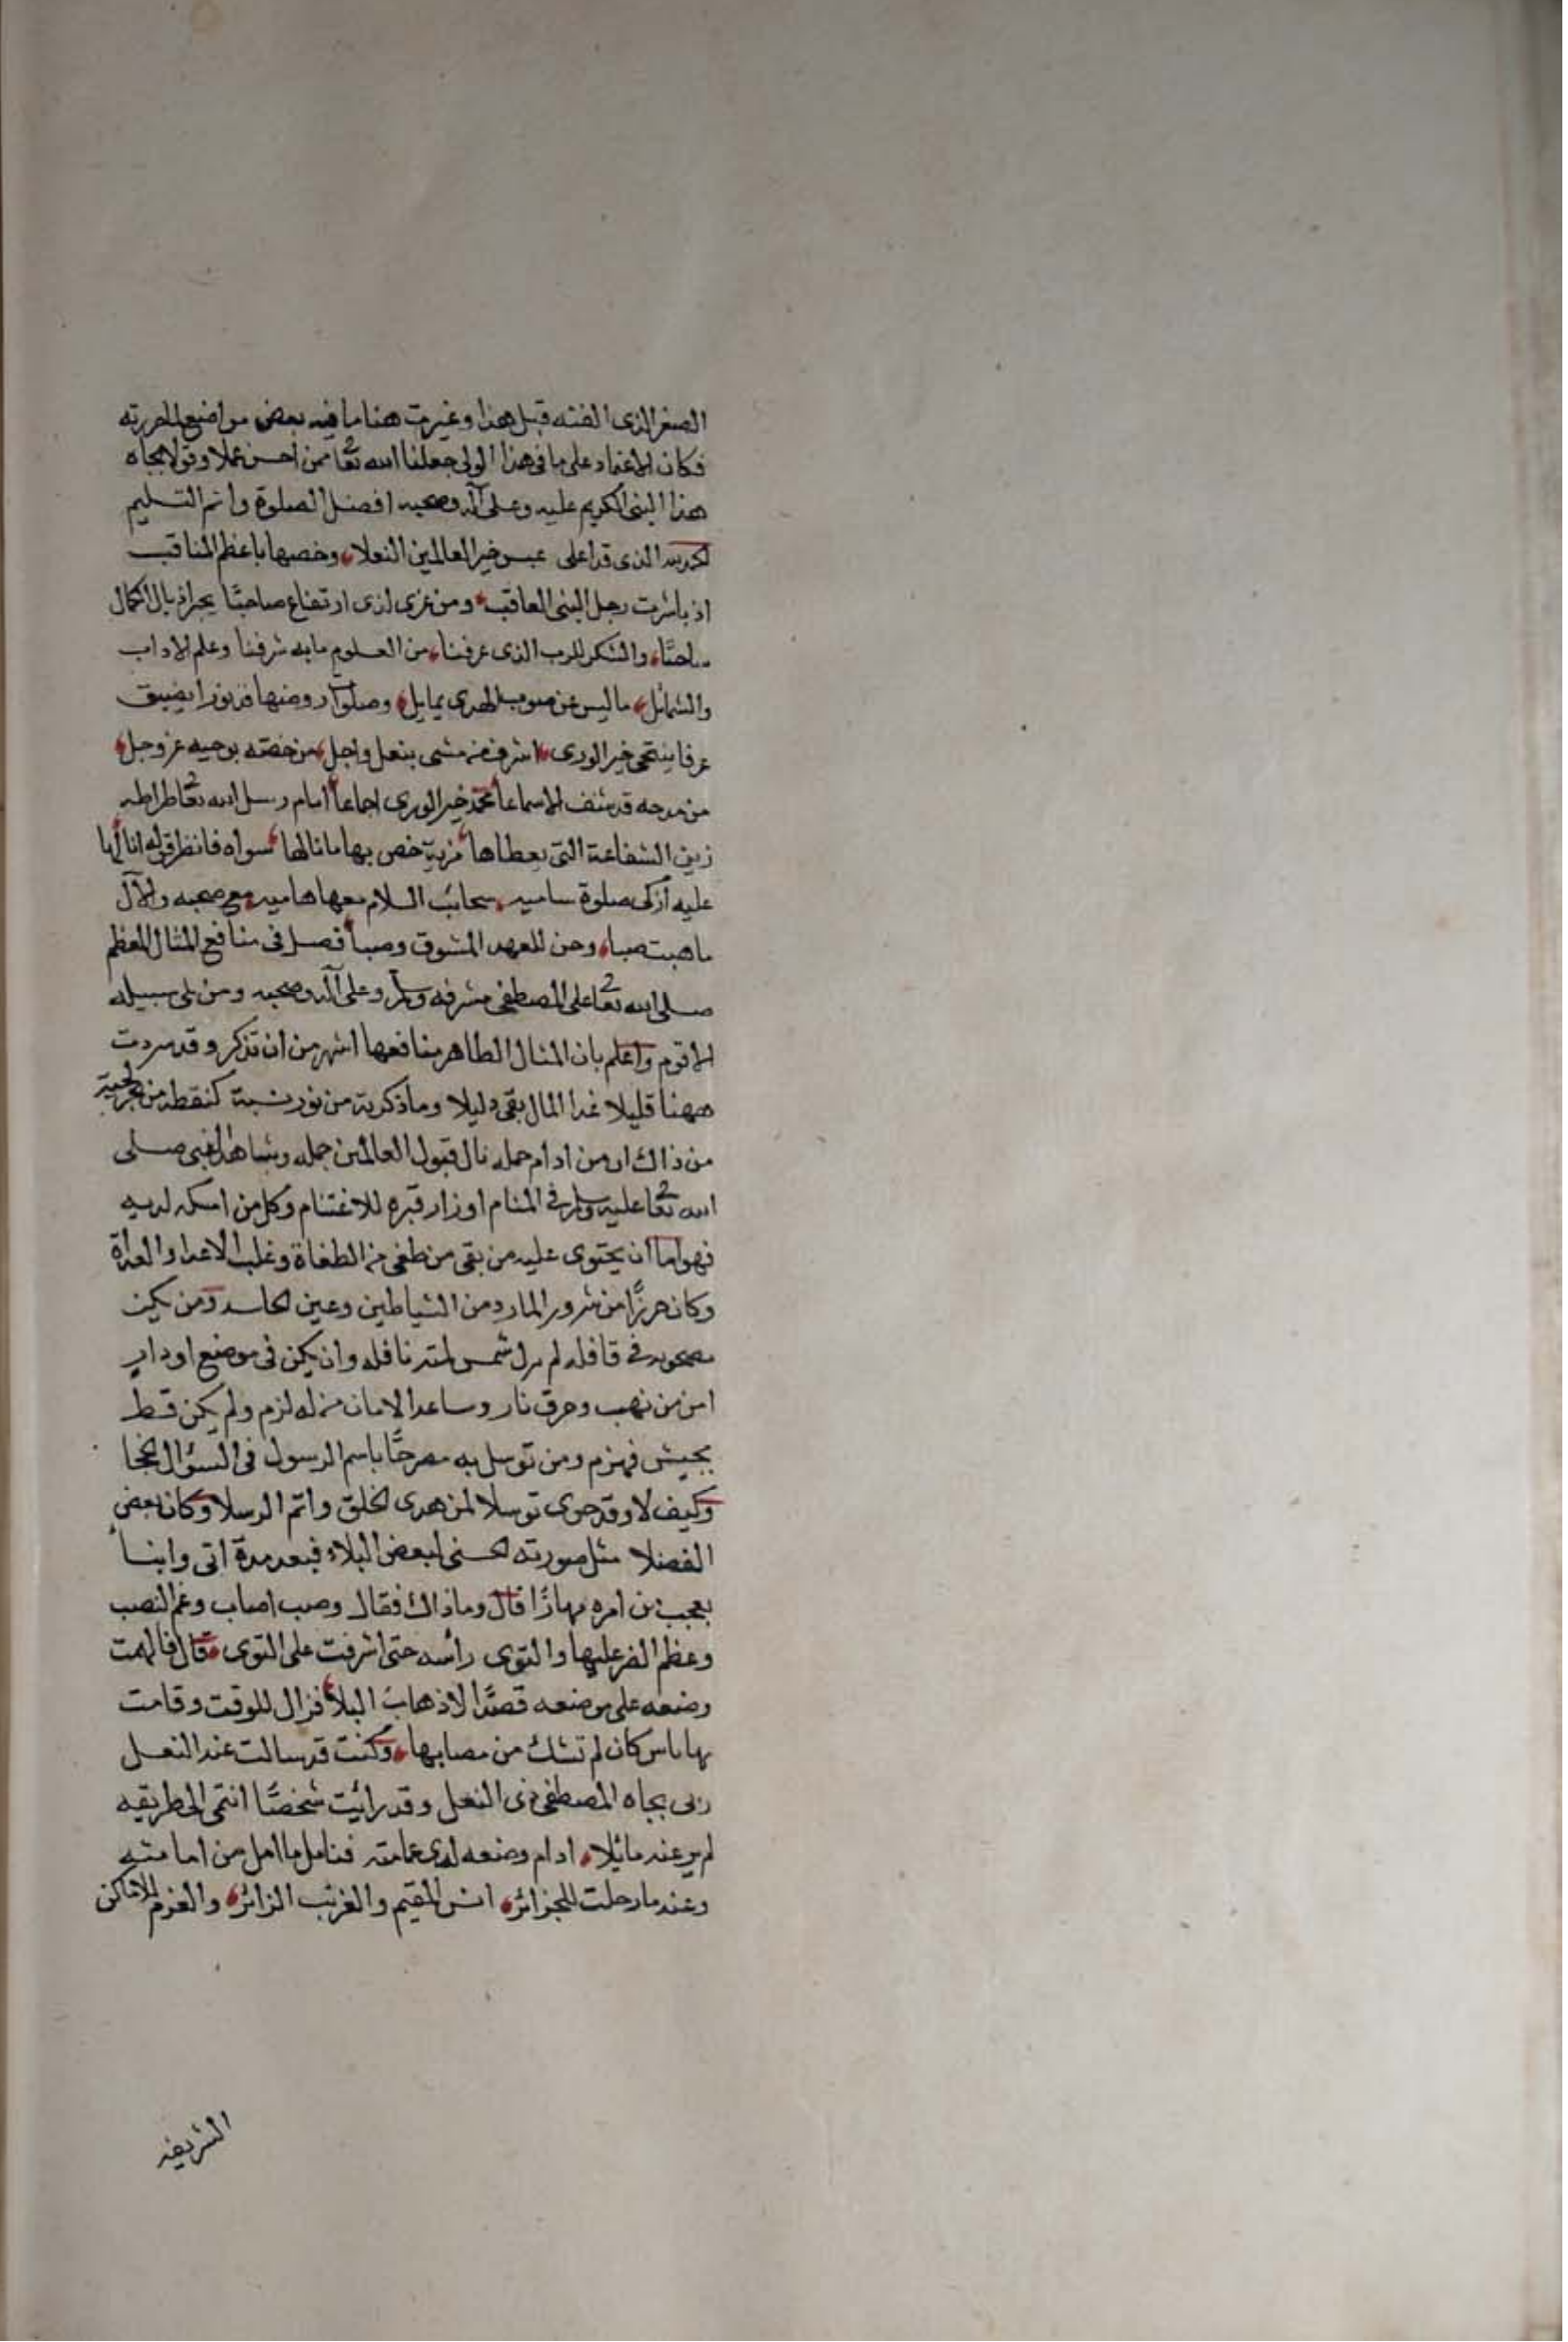 الصغر الذى الفته قبل هذا وغيرت هنا ما فيه بعض مواضيع لما حررته
فكان الاعتماد على ما فى هذا اولى جعلنا الله تعا ممن احسن عملا وقولا بجاه
هذا النبى الكريم عليه وعلى آله وصحبه افضل الصلوة واتم التسليم
الحمد لله الذى قد اعلى عبس خير العالمين النعلا، وخصها باعظم المناقب
اذ باشرت رجل النبى العاقب، ومن غرى لذى ارتفاع صاحبًا يجر اذيال الكمال
ساحبًا، والشكر للرب الذى عرفنا، من العلوم ما به شرفنا وعلم الاداب
والشمائل، ما ليس عن صوب الهدى بمايل، وصلوات روضها قد نورا يضيق
عرفا ينتحى خير الورى، اشرف من مشى بنعل واجل، من خصته بوحيه عز وجل،
من مدحه قد شنف الاسماعا محمد خير الورى اجماعا امام رسل الله تعا طرا طه
زين الشفاعة التى يعطاها، مزية خص بها ما نالها، سواه فانظر قوله انا لها
عليه ازكى صلوة ساميه، سحائب السلام معها هاميه، مع صحبه والآل
ما هبت صبا، وحن للعهد المشوق وصبا، فصل فى منافع المثال المعظم
صلى الله تعا على المصطفى مشرفه وسلم وعلى آله وصحبه ومن تلى سبيله
الاقوم واعلم بان المثال الطاهر منافعها اشهر من ان تذكر وقد سردت
ههنا قليلا غدا المال بقى دليلا وما ذكرته من نور نسبة كنقطه من بحر لجية
من ذاك ان من ادام حمله نال قبول العالمين جمله وشاهد النبى صلى
الله تعا عليه وسلم فى المنام او زار قبره للاغتنام وكل من امسكه لديه
فهو اما ان يحتوى عليه من بقى من طغى من الطغاة وغلب الاعدا والعداة
وكان حرزًا من شرور المارد من الشياطين وعين الحاسد ومن يكن
مصحوبه فى قافله لم يزل شمس لمته نافله وان يكن فى موضع او دار
امن من نهب وحرق نار وساعد الامان من له لزم ولم يكن قط
بجيش فهزم ومن توسل به مصرحًا باسم الرسول فى السؤال نجحا
وكيف لا وقد حوى توسلا لمن هدى الخلق واتم الرسلا وكان بعض
الفضلا مثل صورته الحسنى لبعض البلاء فبعد مدة اتى وابنأ
بعجب من امره بها رأ قال وما ذاك فقال وصب اصاب وغم النصب
وعظم الضر عليها والتوى رأسه حتى اشرفت على التوى، قال فالهمت
وضعه على موضعه قصدًا لاذهاب البلا، فزال للوقت وقامت
بها باس كان لم تشك من مصابها، وكنت قد سالت عند النعل
ربى بجاه المصطفى ذى النعل وقد رأيت شخصًا انتمى الى طريقه
لم ير عنه مائلا، ادام وضعه لدى عمامته فنامل ما امل من امامته
وعند ما رحلت للجزائر، انس المقيم والغريب الزائر، والعزم للاماكن
الشريفه